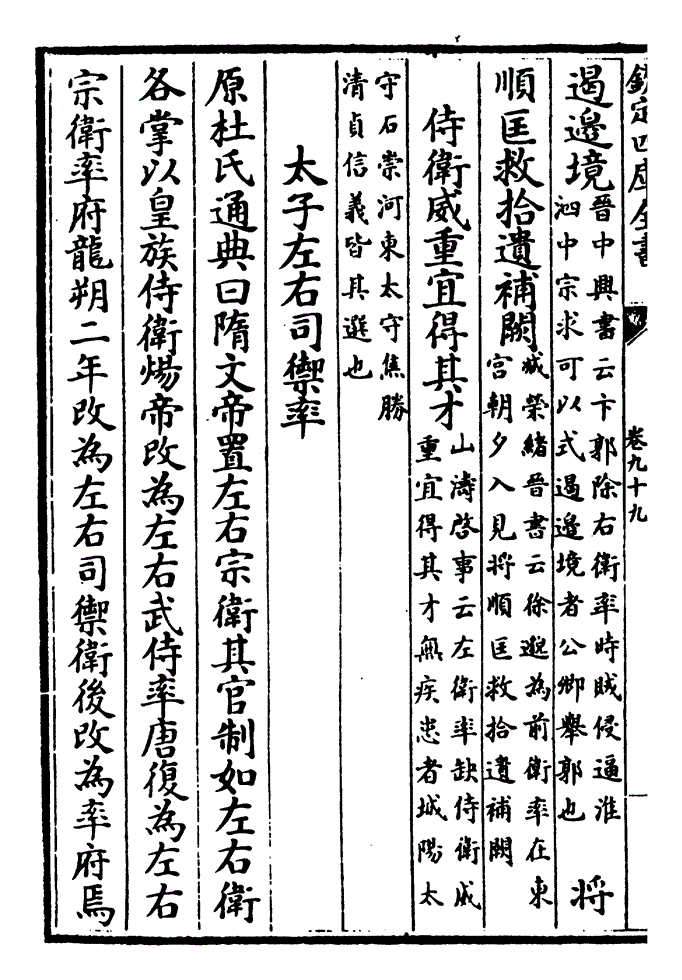 欽定四庫全書
卷九十九
遏邊境晉中興書云卞郭除右衛率時賊侵逼淮
泗中宗求可以式遏邊境者公卿舉郭也將
順匡救拾遺補闕臧榮緒晉書云徐邈為前衛率在東
宮朝夕入見將順匡救拾遺補闕
侍衛威重宜得其才山濤啓事云左衛率缺侍衛威
重宜得其才無疾患者城陽太
守石崇河東太守焦勝
清貞信義皆其選也
太子左右司禦率
原杜氏通典曰隋文帝置左右宗衛其官制如左右衛
各掌以皇族侍衛煬帝改為左右武侍率唐復為左右
宗衛率府龍朔二年改為左右司禦衛後改為率府焉